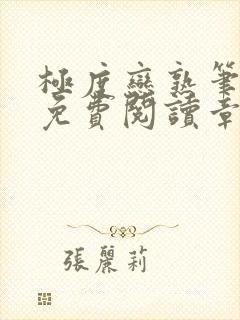 極度戀熟筆
免費閱讀章
張麗莉